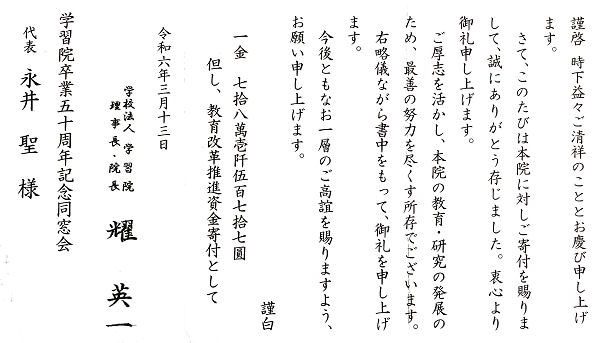 謹啓 時下益々ご清祥のこととお慶び申し上げ
ます。
さて、このたびは本院に対しご寄付を賜りま
して、誠にありがとう存じました。衷心より
御礼申し上げます。
ご厚志を活かし、本院の教育・研究の発展の
ため、最善の努力を尽くす所存でございます。
右略儀ながら書中をもって、御礼を申し上げ
ます。
今後ともなお一層のご高誼を賜りますよう、
お願い申し上げます。
謹白
一金 七拾八萬壱阡伍百七拾七圓
但し、教育改革推進資金寄付として
令和六年三月十三日
学校法人 学習院
理事長・院長
耀 英一
学習院卒業五十周年記念同窓会
代表 永井 聖 様